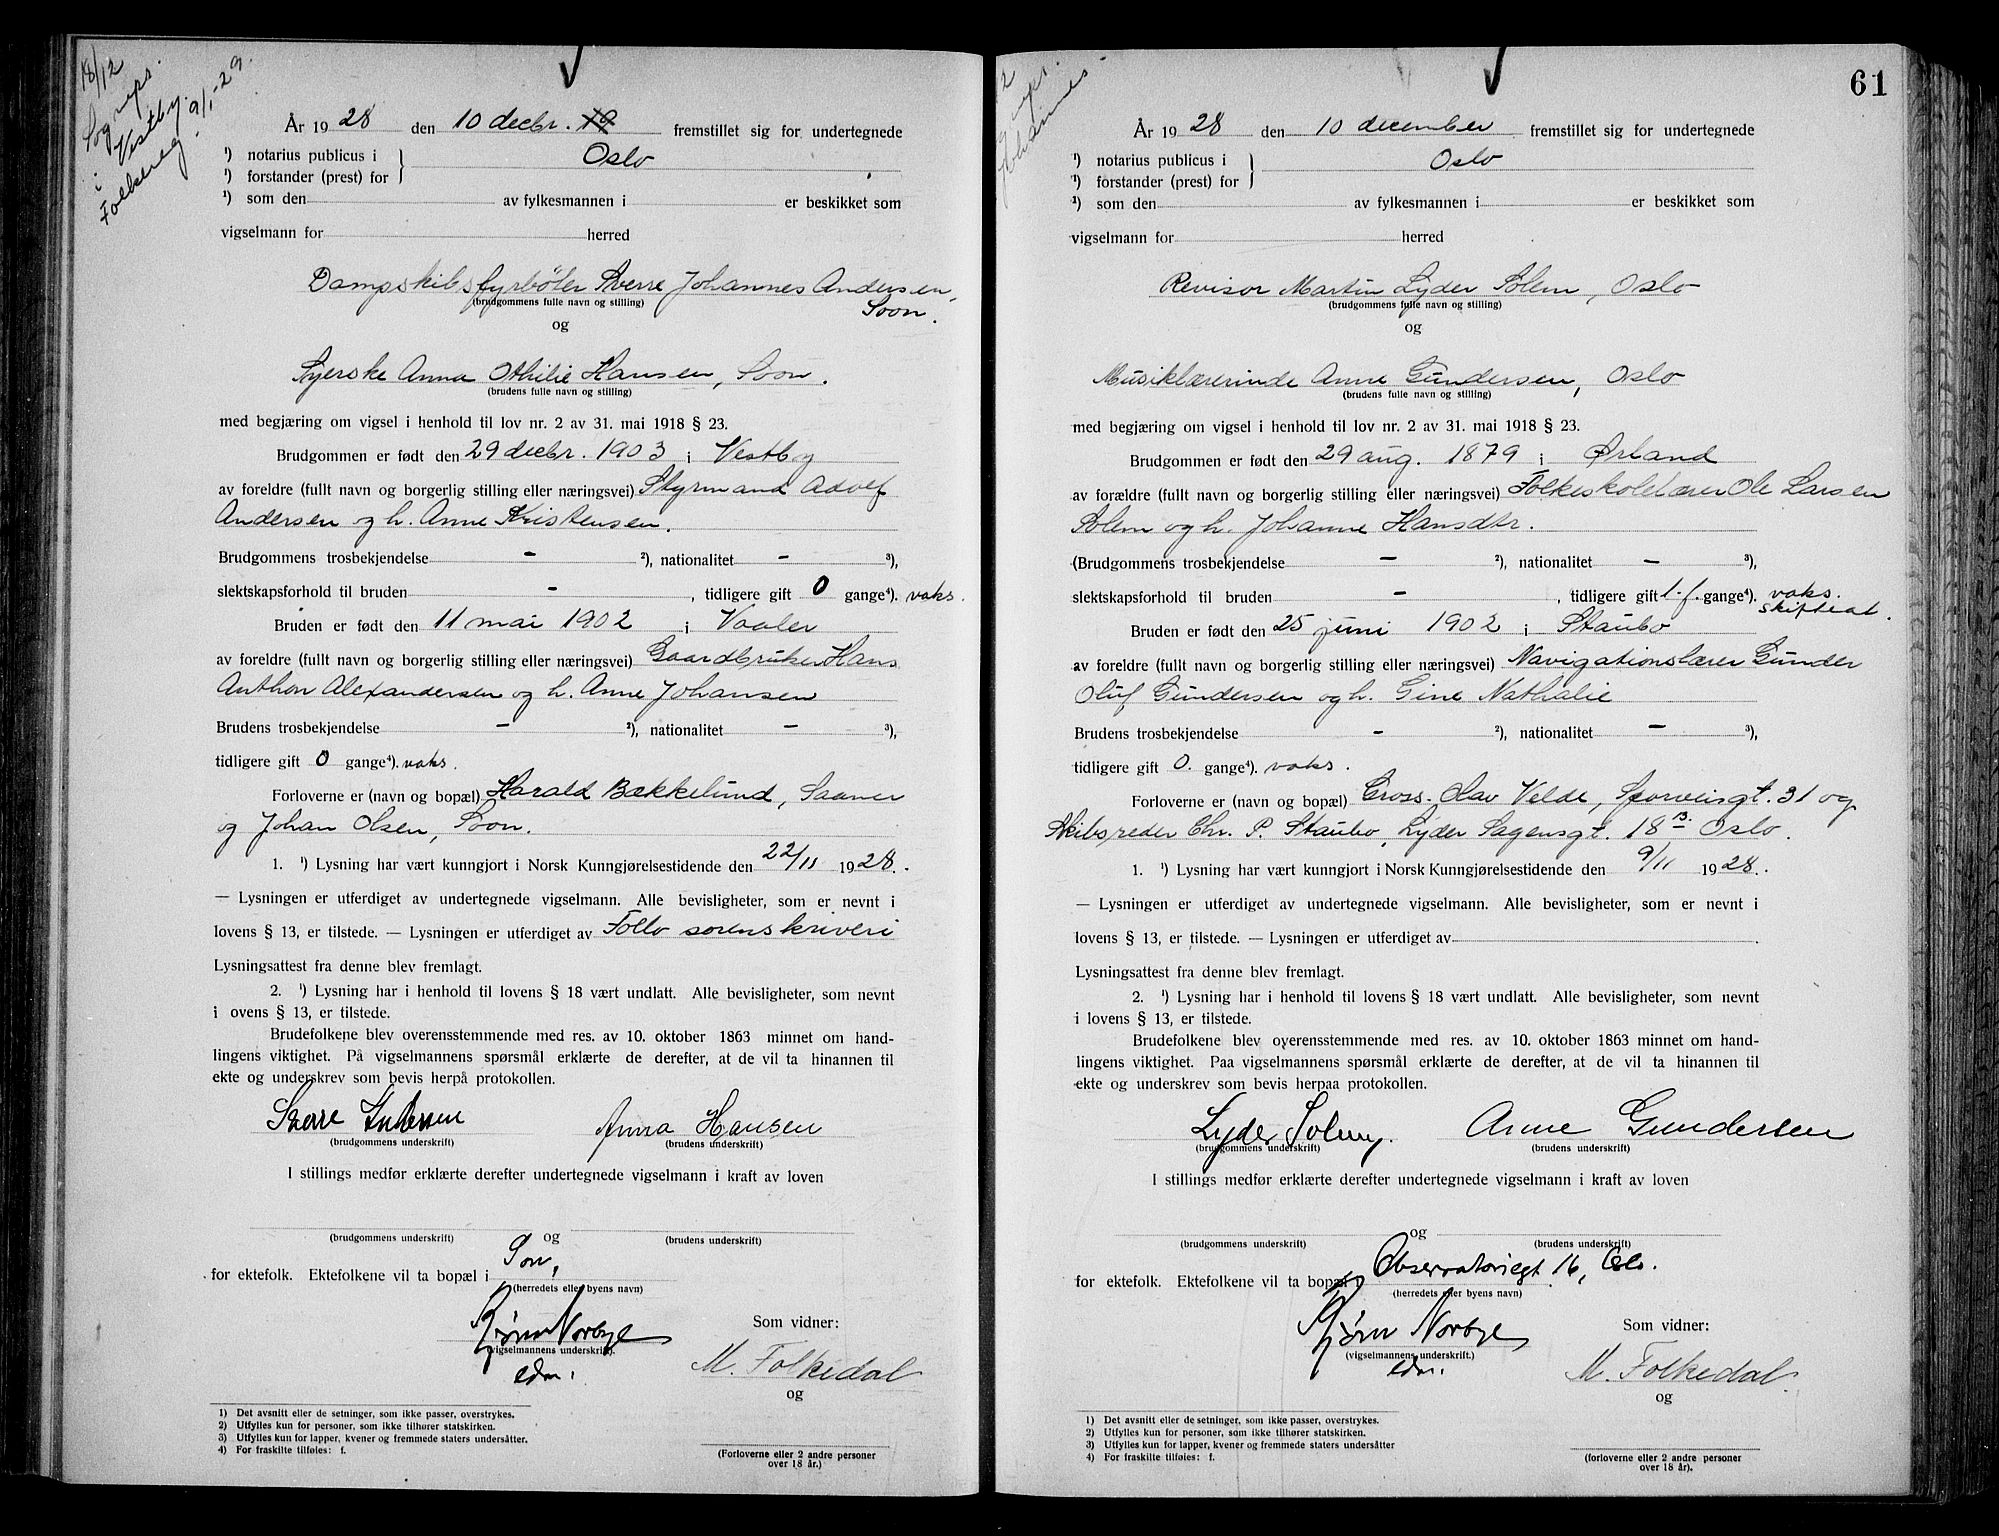 18/12
Sogneprs.
i Vestby.
Folkereg. 9/1-29.
År 1928 den 10 decbr. 19 fremstillet sig for undertegnede
¹) notarius publicus i } Oslo
¹) forstander (prest) for
¹) som den av fylkesmannen i er beskikket som
vigselmann for herred
Dampskibsfyrbøter Sverre Johannes Andersen,
(brudgommens fulle navn og stilling)
Soon.
og
Syerske Anna Othilie Hansen, Soon.
(brudens fulle navn og stilling)
med begjæring om vigsel i henhold til lov nr. 2 av 31. mai 1918 § 23.
Brudgommen er født den 29 decbr. 1903 i Vestby
av foreldre (fullt navn og borgerlig stilling eller næringsvei) Styrmand Adolf
Andersen og h. Anne Kristensen.
Brudgommens trosbekjendelse - ²), nationalitet - ³),
slektskapsforhold til bruden - , tidligere gift 0 gange⁴). voks.
Bruden er født den 11 mai 1902 i Vaaler
av foreldre (fullt navn og borgerlig stilling eller næringsvei) Gaardbruker Hans
Anthon Alexandersen og h. Anne Johansen
Brudens trosbekjendelse - ²), nationalitet - ³),
tidligere gift 0 gange⁴). voks.
Forloverne er (navn og bopæl) Harald Bækkelund, Saaner
og Johan Olsen, Soon.
1. ¹) Lysning har vært kunngjort i Norsk Kunngjørelsestidende den 22/11 1928.
— Lysningen er utferdiget av undertegnede vigselmann. Alle bevisligheter, som er nevnt i
lovens § 13, er tilstede. — Lysningen er utferdiget av Follo sorenskriveri
Lysningsattest fra denne blev fremlagt.
2. ¹) Lysning har i henhold til lovens § 18 vært undlatt. Alle bevisligheter, som nevnt
i ovens § 13, er tilstede.
Brudefolkene blev overensstemmende med res. av 10. oktober 1863 minnet om hand-
lingens viktighet. På vigselmannens spørsmål erklærte de derefter, at de vil ta hinannen til
ekte og underskrev som bevis herpå protokollen.
Sverre Andersen Anna Hansen
(brudgommens underskrift) (brudens underskrift)
I stillings medfør erklærte derefter undertegnede vigselmann i kraft av loven
og
(brudgommens underskrift) (brudens underskrift)
for ektefolk. Ektefolkene vil ta bopæl i Son,
(herredets eller byens navn)
Bjørn Norbye
(vigselmannens underskrift).
edm.
Som vidner:
M. Folkedal
og
(Forloverne eller 2 andre personer
over 18 år.)
1) Det avsnitt eller de setninger, som ikke passer, overstrykes.
2) Utfylles kun for personer, som ikke tilhører statskirken.
3) Utfylles kun for lapper, kvener og fremmede staters undersåtter.
4) For fraskilte tilføies: f.
61
År 1928 den 10 december fremstillet sig for undertegnede
¹) notarius publicus i } Oslo
¹) forstander (prest) for
¹) som den av fylkesmannen i er beskikket som
vigselmann for herred
Revisor Martin Lyder Solem, Oslo
(brudgommens fulle navn og stilling)
og
Musiklærerinde Anne Gundersen, Oslo
(brudens fulle navn og stilling)
med begjæring om vigsel i henhold til lov nr. 2 av 31. mai 1918 § 23.
Brudgommen er født den 29 aug. 1879 i Ørland
av forældre (fullt navn og borgerlig stilling eller næringsvei) Folkeskolelærer Ole Larsen
Solem og h. Johanne Hansdtr.
(Brudgommens trosbekjendelse - ²), nationalitet - ³),
slektskapsforhold til bruden - , tidligere gift 1. f. gange⁴). voks.
skifteat.
Bruden er født den 25 juni 1902 i Staubo
av foreldre (fullt navn og borgerlig stilling eller næringsvei) Navigationslærer Gunder
Oluf Gundersen og h. Gine Nathalie
Brudens trosbekjendelse - ²), nationalitet - ³),
tidligere gift 0. gange⁴). voks.
Forloverne er (navn og bopæl) Gross. Olav Velde, Sporveisgt. 31 og
Skibsreder Chr. P. Staubo, Lyder Sagensgt. 18 B. Oslo.
1. ¹) Lysning har vært kunngjort i Norsk Kunngjørelsestidende den 9/11 1928.
— Lysningen er utferdiget av undertegnede vigselmann. Alle bevisligheter, som er nevnt i
lovens § 13, er tilstede. — Lysningen er utferdiget av
Lysningsattest fra denne blev fremlagt.
2. ¹) Lysning har i henhold til lovens § 18 vært undlatt. Alle bevisligheter, som nevnt
i lovens § 13, er tilstede.
Brudefolkene blev overensstemmende med res. av 10. oktober 1863 minnet om hand-
lingens viktighet. Paa vigselmannens spørsmål erklærte de derefter, at de vil ta hinannen til
ekte og underskrev som bevis herpaa protokollen.
Lyder Solem. Anne Gundersen
(brudgommens underskrift) (brudens underskrift)
I stillings medfør erklærte derefter undertegnede vigselmann i kraft av loven
og
(brudgommens underskrift) (brudens underskrift)
for ektefolk. Ektefolkene vil ta bopæl i Observatoriegt 16, Oslo.
(herredets eller byens navn)
Bjørn Norbye
(vigselmannens underskrift.)
edm.
Som vidner:
M. Folkedal
og
(forloverne eller 2 andre personer
over 18 år).
1) Det avsnitt eller de setninger, som ikke passer, overstrykes.
2) Utfylles kun for personer, som ikke tilhører statskirken.
3) Utfylles kun for lapper, kvener og fremmede staters undersåtter
4) For fraskilte tilføies: f.